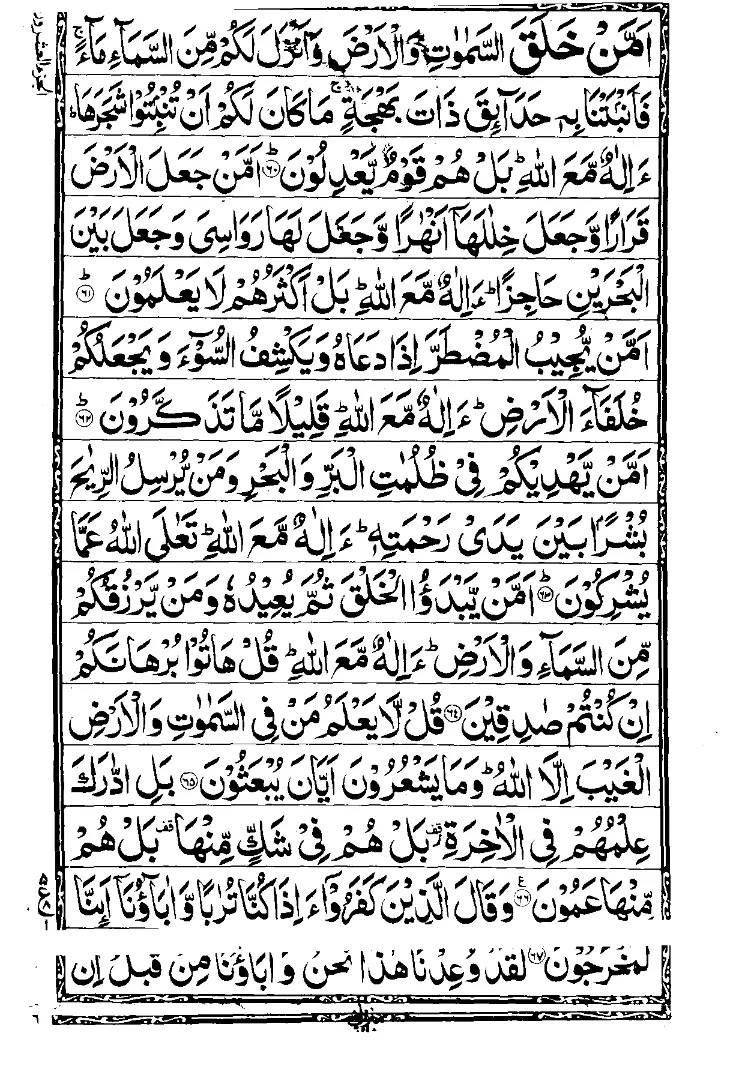 اَمَّنۡ خَلَقَ السَّمٰوٰتِ وَالۡاَرۡضَ وَاَنۡزَلَ لَكُمۡ مِّنَ السَّمَآءِ مَآءً ۚ
فَاَنۡۢبَتۡنَا بِهٖ حَدَآئِقَ ذَاتَ بَهۡجَةٍ ۚ مَا كَانَ لَكُمۡ اَنۡ تُنۡۢبِتُوۡا شَجَرَهَا ؕ
ءَاِلٰهٌ مَّعَ اللّٰهِ ؕ بَلۡ هُمۡ قَوۡمٌ يَّعۡدِلُوۡنَ ؕ‏﴿۶۰﴾ اَمَّنۡ جَعَلَ الۡاَرۡضَ
قَرَارًا وَّجَعَلَ خِلٰلَهَاۤ اَنۡهٰرًا وَّجَعَلَ لَهَا رَوَاسِىَ وَجَعَلَ بَيۡنَ
الۡبَحۡرَيۡنِ حَاجِزًا ؕ ءَاِلٰهٌ مَّعَ اللّٰهِ ؕ بَلۡ اَكۡثَرُهُمۡ لَا يَعۡلَمُوۡنَ ؕ‏﴿۶۱﴾
اَمَّنۡ يُّجِيۡبُ الۡمُضۡطَرَّ اِذَا دَعَاهُ وَيَكۡشِفُ السُّوۡٓءَ وَيَجۡعَلُكُمۡ
خُلَفَآءَ الۡاَرۡضِ ؕ ءَاِلٰهٌ مَّعَ اللّٰهِ ؕ قَلِيۡلًا مَّا تَذَكَّرُوۡنَ ؕ‏﴿۶۲﴾
اَمَّنۡ يَّهۡدِيۡكُمۡ فِىۡ ظُلُمٰتِ الۡبَرِّ وَالۡبَحۡرِ وَمَنۡ يُّرۡسِلُ الرِّيٰحَ
بُشۡرًۢا بَيۡنَ يَدَىۡ رَحۡمَتِهٖ ؕ ءَاِلٰهٌ مَّعَ اللّٰهِ ؕ تَعٰلَى اللّٰهُ عَمَّا
يُشۡرِكُوۡنَ ؕ‏﴿۶۳﴾ اَمَّنۡ يَّبۡدَؤُا الۡخَلۡقَ ثُمَّ يُعِيۡدُهٗ وَمَنۡ يَّرۡزُقُكُمۡ
مِّنَ السَّمَآءِ وَالۡاَرۡضِ ؕ ءَاِلٰهٌ مَّعَ اللّٰهِ ؕ قُلۡ هَاتُوۡا بُرۡهَانَكُمۡ
اِنۡ كُنۡتُمۡ صٰدِقِيۡنَ‏﴿۶۴﴾ قُلْ لَّا يَعۡلَمُ مَنۡ فِى السَّمٰوٰتِ وَالۡاَرۡضِ
الۡغَيۡبَ اِلَّا اللّٰهُ ؕ وَمَا يَشۡعُرُوۡنَ اَيَّانَ يُبۡعَثُوۡنَ‏﴿۶۵﴾ بَلِ ادّٰرَكَ
عِلۡمُهُمۡ فِى الۡاٰخِرَةِ قف بَلۡ هُمۡ فِىۡ شَكٍّ مِّنۡهَا قف بَلۡ هُمۡ
مِّنۡهَا عَمُوۡنَ‏﴿۶۶﴾ وَقَالَ الَّذِيۡنَ كَفَرُوۡۤا ءَاِذَا كُنَّا تُرٰبًا وَّاٰبَآؤُنَاۤ اَئِنَّا
لَمُخۡرَجُوۡنَ‏﴿۶۷﴾ لَقَدۡ وُعِدۡنَا هٰذَا نَحۡنُ وَاٰبَآؤُنَا مِنۡ قَبۡلُ اِنۡ